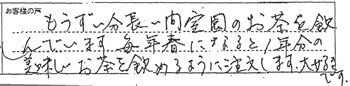 お客様の声
もうずい分長い間室園のお茶を飲
んでいます。毎年春になると1年分の
美味しいお茶を飲めるように注文します。大好き
です。